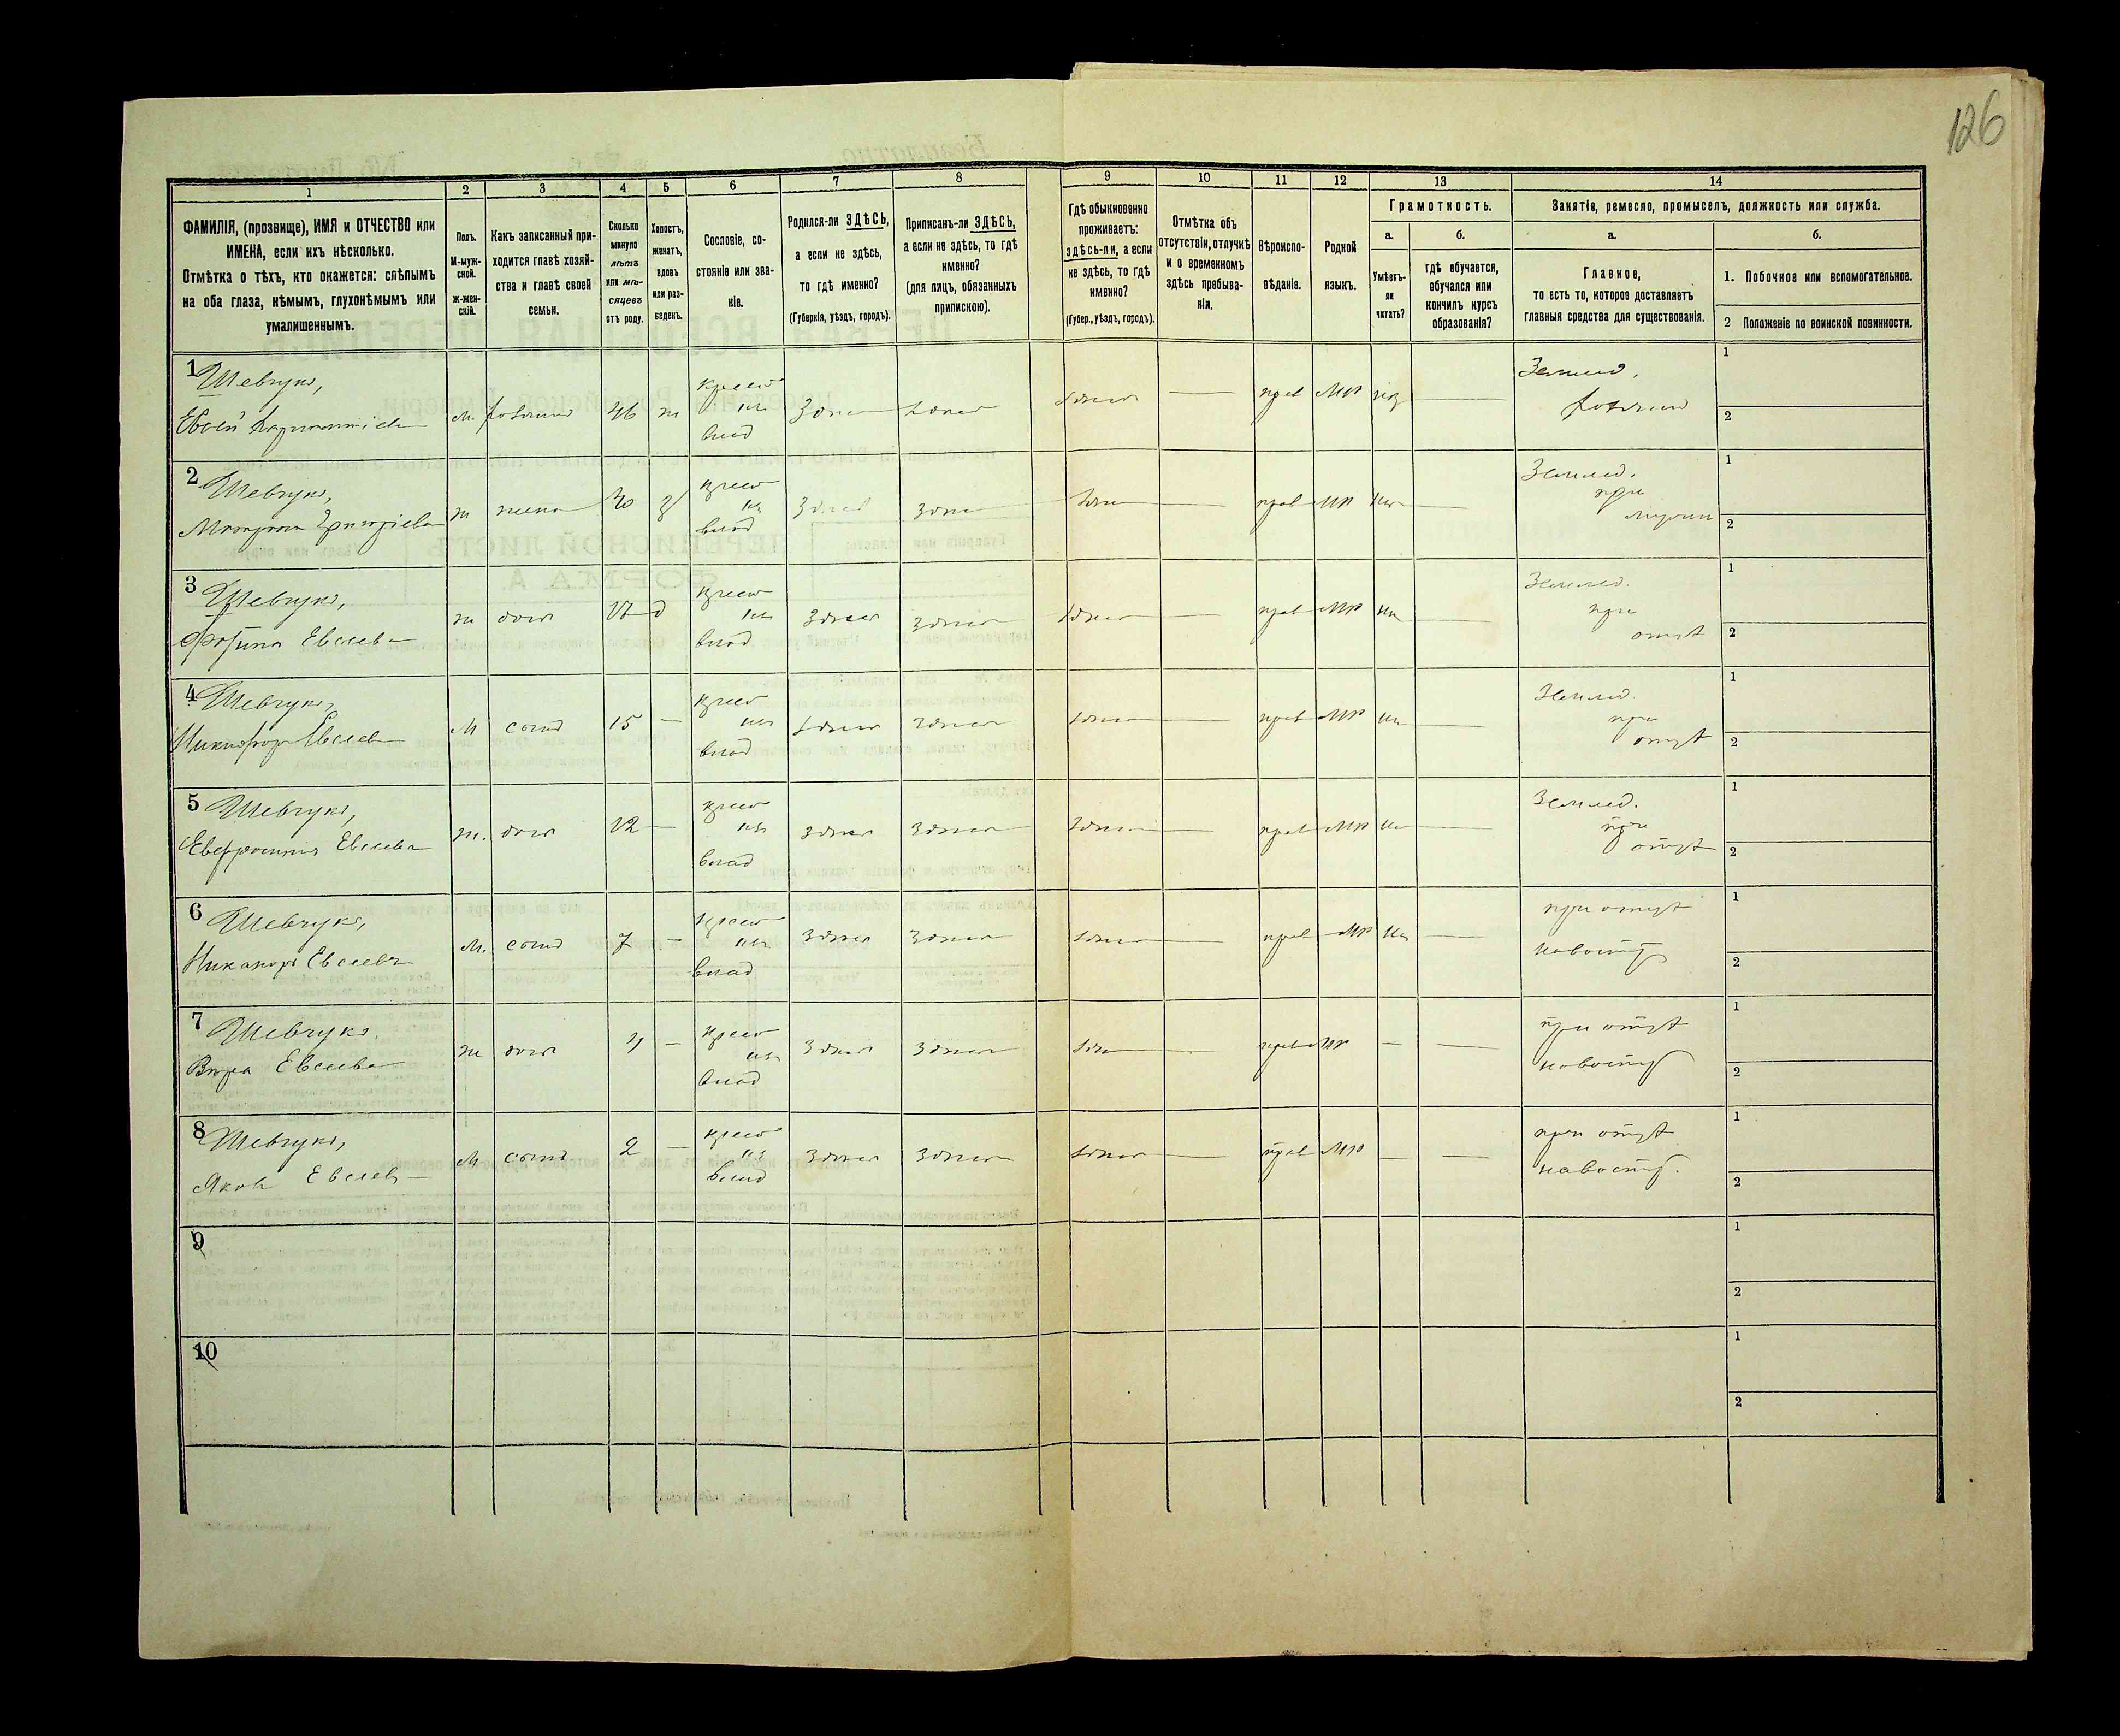 126
1 2 3 4 5 6 7 8 9 10 11 12 13 14
ФАМИЛІЯ, (прозвище), ИМЯ и ОТЧЕСТВО или
ИМЕНА, если ихъ нѣсколько.
Отмѣтка о тѣхъ, кто окажется: слѣпымъ
на оба глаза, нѣмымъ, глухонѣмымъ или
умалишеннымъ.
Полъ.
М-муж-
ской.
Ж-жен-
скій.
Какъ записанный при-
ходится главѣ хозяй-
ства и главѣ своей
семьи.
Сколько
минуло
лѣтъ
или мѣ-
сяцевъ
отъ роду.
Холостъ,
женатъ,
вдовъ
или раз-
веденъ.
Сословіе, со-
стояніе или зва-
ніе.
Родился-ли ЗДѢСЬ,
а если не здѣсь,
то гдѣ именно?
(Губернія, уѣздъ, городъ).
Приписанъ-ли ЗДѢСЬ,
а если не здѣсь, то гдѣ
именно?
(для лицъ, обязанныхъ
припискою).
Гдѣ обыкновенно
проживаетъ:
здѣсь-ли, а если
не здѣсь, то гдѣ
именно?
(Губер., уѣздъ, городъ).
Отмѣтка объ
отсутствіи, отлучкѣ
и о временномъ
здѣсь пребыва-
ніи.
Вѣроиспо-
вѣданіе.
Родной
языкъ.
Грамотность.
а.
Умѣетъ-
ли
читать?
б.
гдѣ обучается,
обучался или
кончилъ курсъ
образованія?
Занятіе, ремесло, промыселъ, должность или служба.
а.
Главное,
то есть то, которое доставляетъ
главныя средства для существованія.
б.
1. Побочное или вспомогательное.
2 Положеніе по воинской повинности.
1 Шевчукъ,
Евсей
м. 46 ж
крест
изъ
влад
Здѣсь здѣсь здѣсь — прав МР —
Землед.
1
2
2 Шевчукъ,
Григоріева
ж жена
крест
изъ
влад
Здѣсь Здѣсь здѣсь — прав МР —
Землед.
при
мужѣ
1
2
3 Шевчукъ,
Евсеева
ж дочь 17 д
крест
изъ
влад
Здѣсь Здѣсь здѣсь — прав МР —
Землед.
при
отцѣ
1
2
4 Шевчукъ,
Никифоръ Евсеев
м сынъ 15 —
крест
изъ
влад
здѣсь здѣсь здѣсь — прав МР —
Землед.
при
отцѣ
1
2
5 Шевчукъ,
Евфросинія Евсеева
ж. дочь 12 —
крест
изъ
влад
здѣсь здѣсь здѣсь — прав МР —
Землед.
при
отцѣ
1
2
6 Шевчукъ,
Никаноръ Евсеевъ
м. сынъ 7 —
крест
изъ
влад
здѣсь здѣсь здѣсь — прав МР —
при отцѣ
1
2
7 Шевчукъ
Вѣра Евсеева
ж дочь —
крест
изъ
влад
здѣсь здѣсь здѣсь — прав МР — —
при отцѣ
1
2
8 Шевчукъ,
Яковъ Евсеевъ
м сынъ 2 —
крест
изъ
влад
здѣсь здѣсь здѣсь — прав МР — —
при отцѣ
1
2
9
1
2
10
1
2